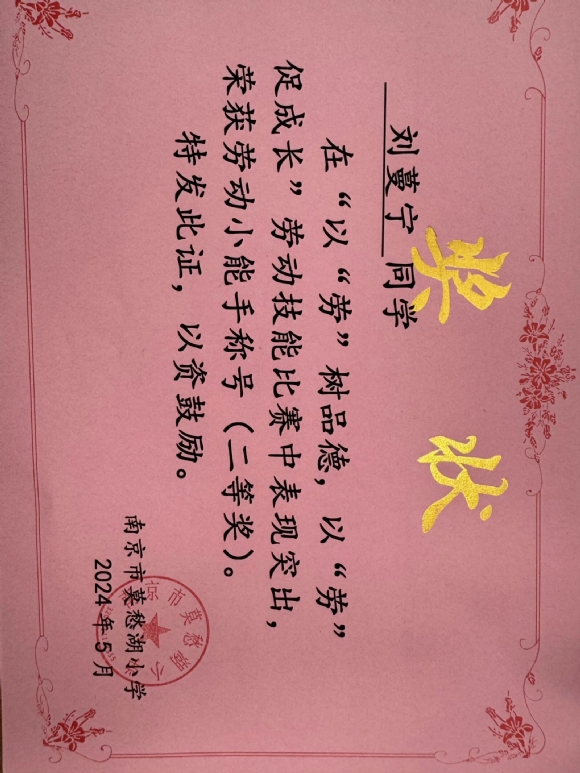 奖状
刘蔓宁 同学
在“以“劳”树品德，以“劳”
促成长”劳动技能比赛中表现突出，
荣获劳动小能手称号（二等奖）。
特发此证，以资鼓励。
南京市莫愁湖小学
2024年5月